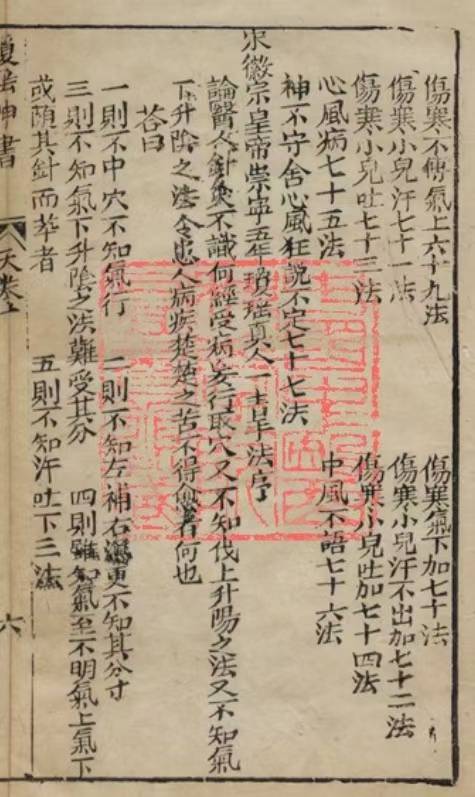 傷寒不傳氣上六十九法 傷寒氣下加七十法
傷寒小兒汗七十一法 傷寒小兒汗不出加七十二法
傷寒小兒吐七十三法 傷寒小兒吐加七十四法
心風病七十五法 中風不語七十六法
神不守舍心風狂説不定七十七法
宋徽宗皇帝崇寧五年瓊瑶真人八十法序
論醫人針灸不識何經受病妄行取穴又不知伐上升陽之法又不知氣
下升陰之法令患人病疾楚楚之苦不得愈者何也
荅曰
一則不中穴不知氣行 二則不知左補右瀉更不知其分寸
三則不知氣下升陰之法難受其分 四則雖知氣至不明氣上氣下
或隨其針而卒者 五則不知汗吐下三法
神書
天卷上
六